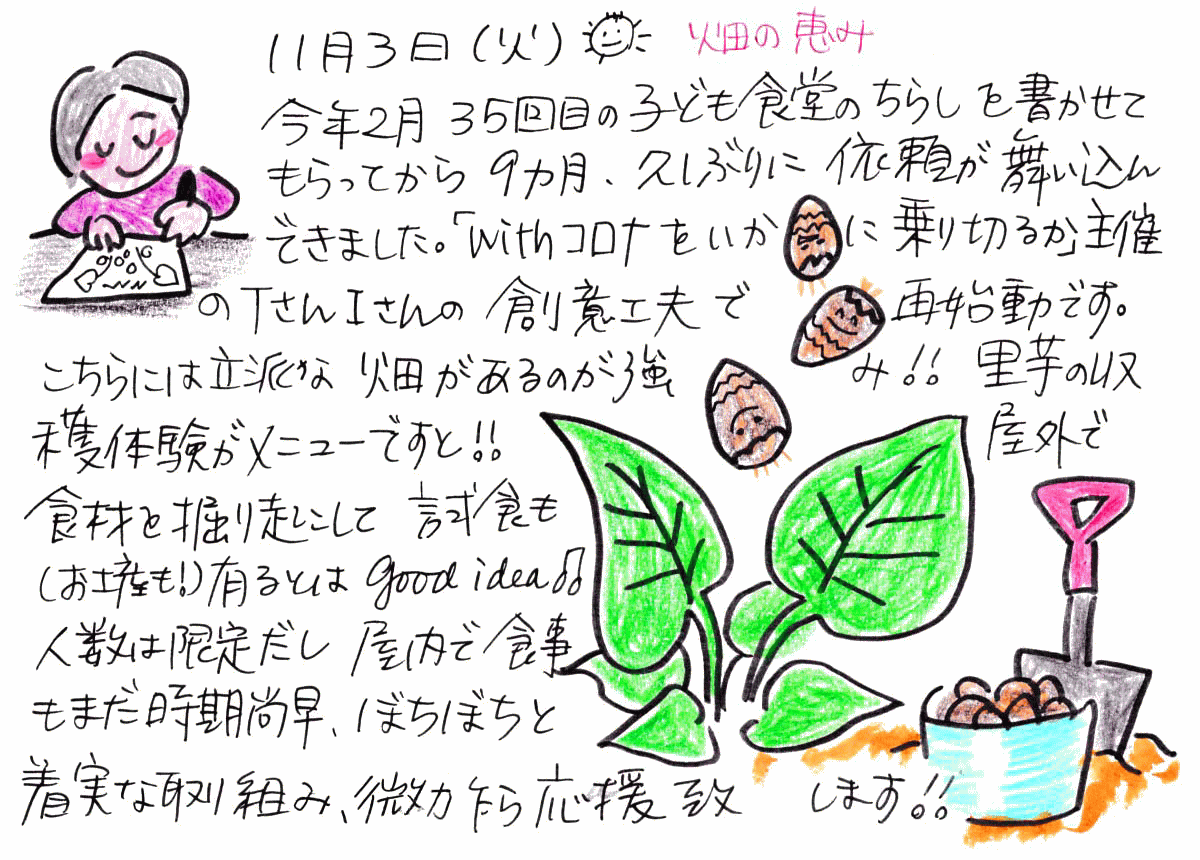 11月3日(火) 畑の恵み
今年2月 35回目の子ども食堂のちらしを書かせて
もらってから 9カ月、久しぶりに 依頼が舞い込ん
できました。「withコロナをいかに乗り切るか」主催
のTさんIさんの 創意工夫で再始動です。
こちらには立派な 畑があるのが強み!! 里芋の収
穫体験がメニューですと!! 屋外で
食材を掘り起こして 試食も
(お土産も!)有るとは good idea♫
人数は限定だし 屋内で食事
もまだ時期尚早、ぼちぼちと
着実な取り組み、微力乍ら応援致します!!